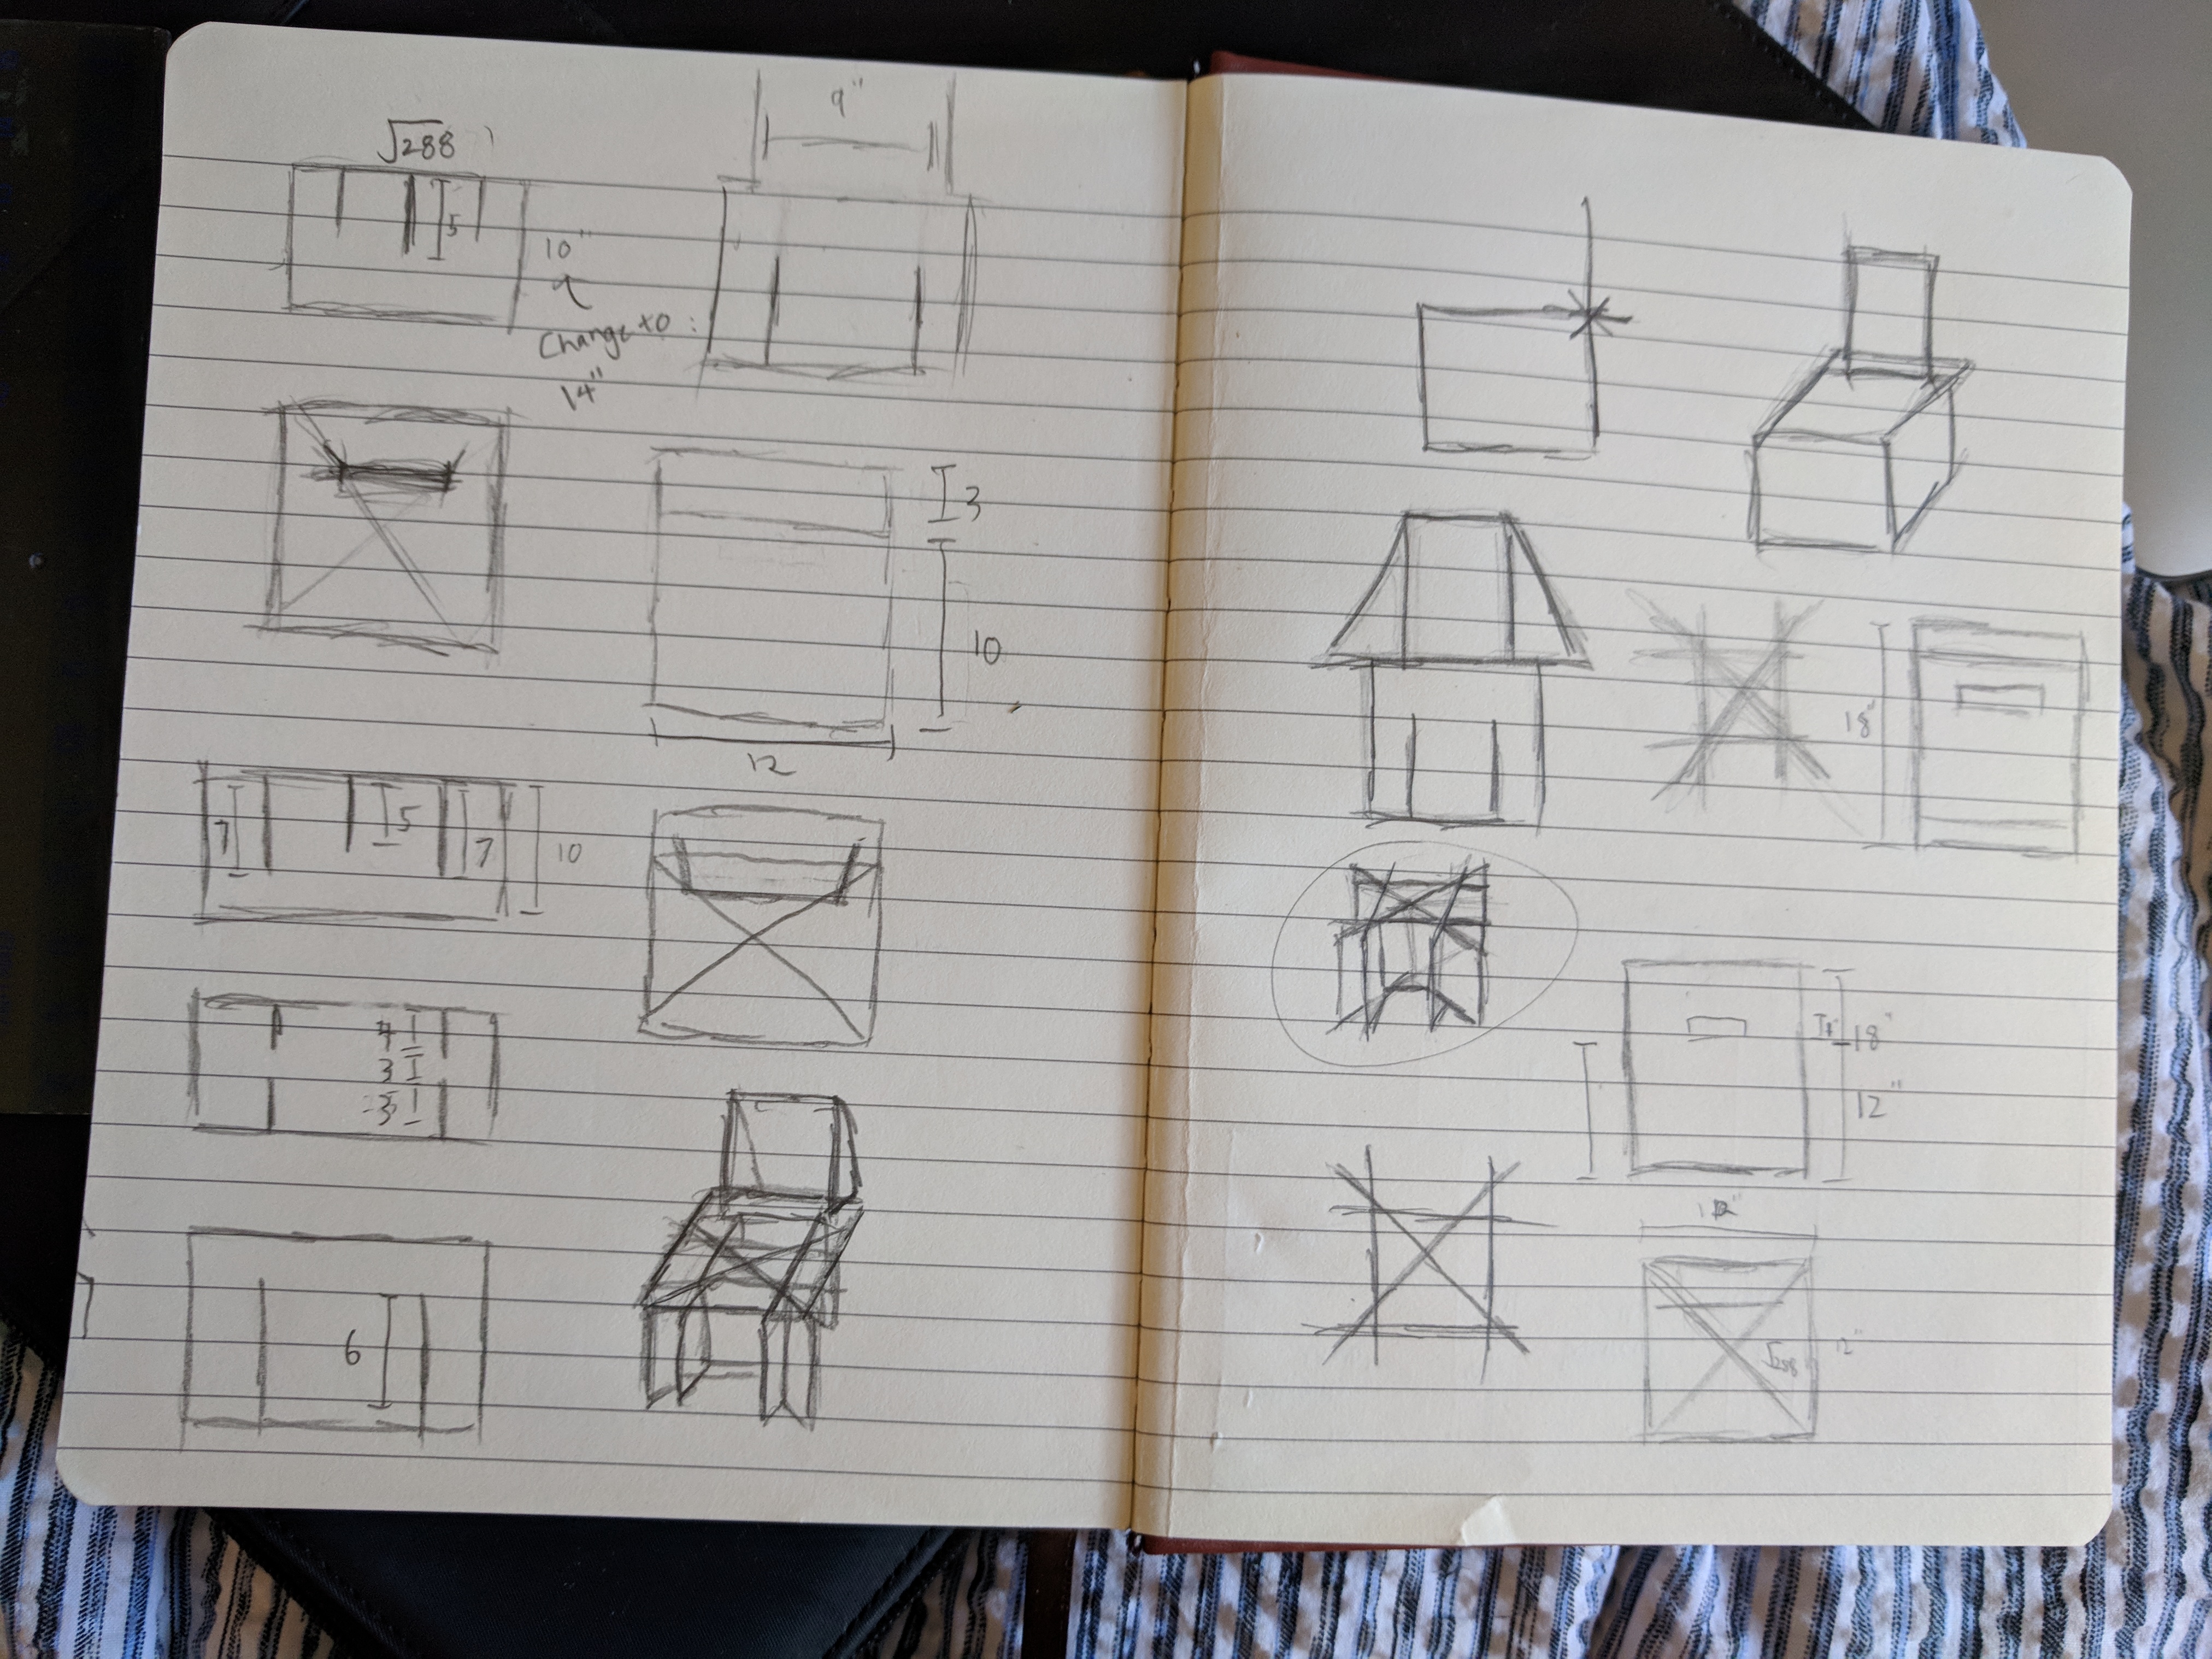 √288
9"
5
10"
Change to :
14"
3
10
12
7
5
7
10
4
3
3
6
18"
18"
12"
12"
√288